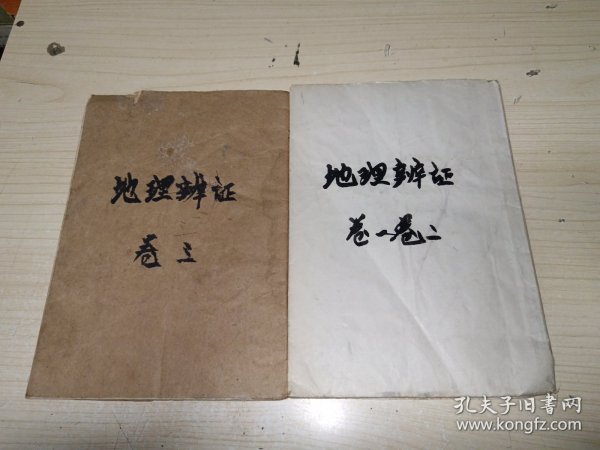 地理辨证
卷三
地理辨证
卷一卷二
孔夫子旧書网
www.kongfz.com